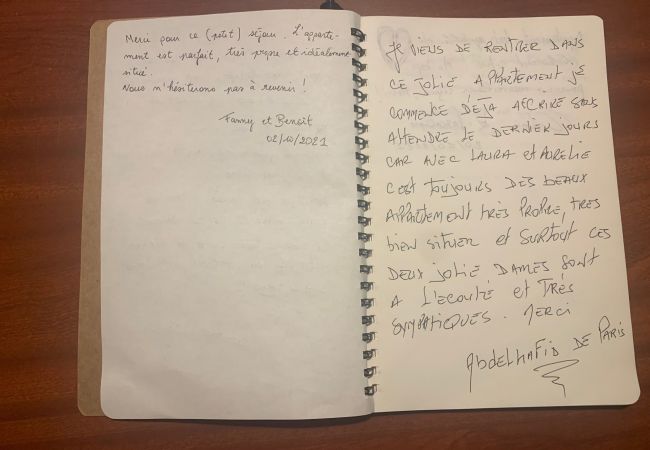 Merci pour ce (petit) séjour. L'apparte-
ment est parfait, très propre et idéalement
situé.
Nous n'hésiterons pas à revenir !
Fanny et Benoît
02/10/2021
Je viens DE RENTRER DANS
CE JOLIE APPARTEMENT JE
COMMENCE DÉJA AECRIRE SANS
ATTENDRE LE DERNIER JOURS
CAR AVEC LAURA et AURELIE
C'EST TOUJOURS DES BEAUX
APPARTEMENT TRÈS PROPRE, TRES
bien situer et SURTOUT CES
DEUX JOLIE DAMES SONT
A L'ECOUTE et TRÈS
SYMPATIQUES. MERCI
AbdELHAFID DE PARIS